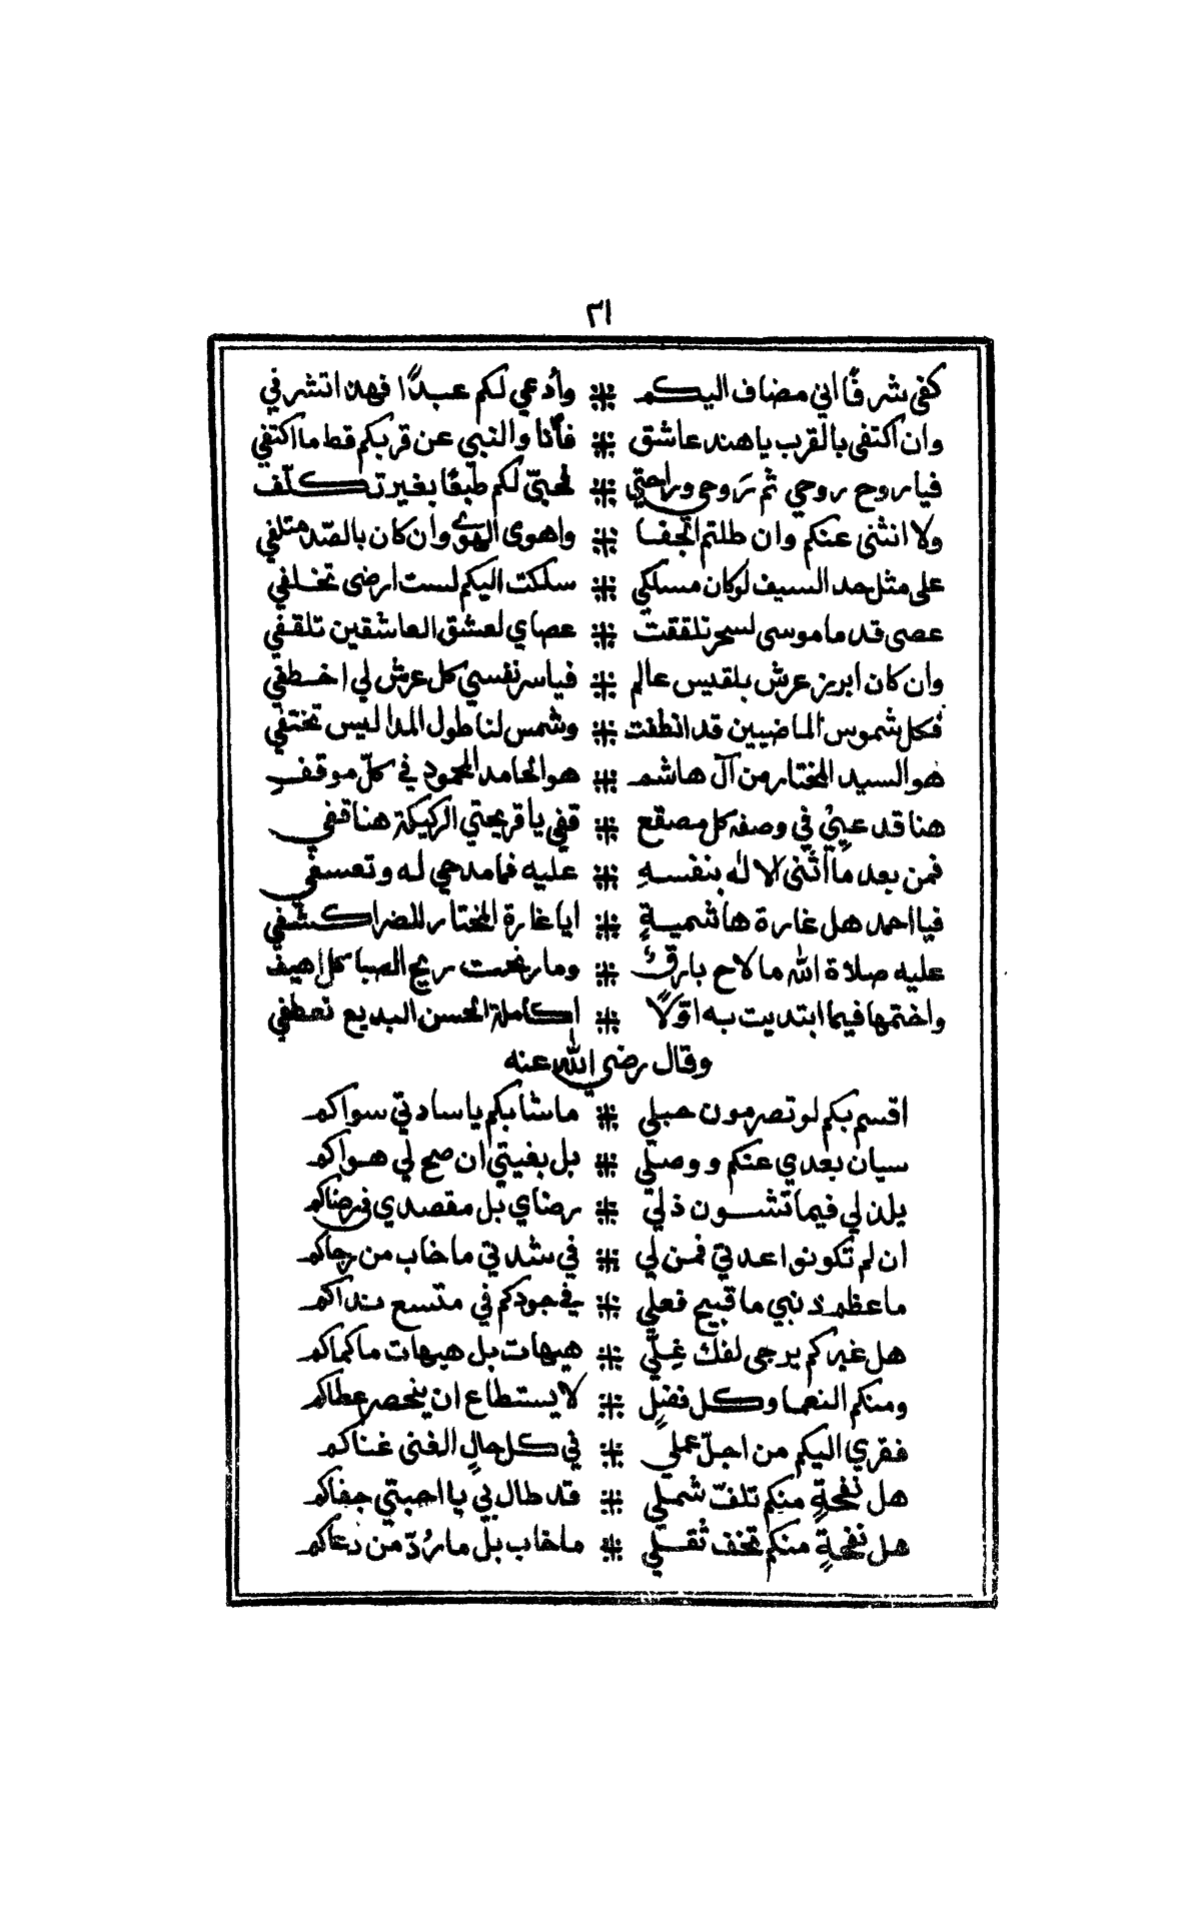 ٣١
كفى شرفًا اني مضاف اليكم ⁜ وأدعي لكم عبدًا فهذا تشرفي
وان اكتفى بالقرب ياهند عاشق ⁜ فأنا والنبي عن قربكم قط ما اكتفي
فيا روح روحي ثم رَوحي وراحتي ⁜ لحبّي لكم طبعًا بغير تكلّف
ولا انثنى عنكم وان طلتم الجفا ⁜ واهوى الهوى وان كان بالصّد متلفي
على مثل حد السيف لو كان مسلكي ⁜ سلكت اليكم لست ارضى تخلفي
عصى قدما موسى لسحر تلقفت ⁜ عصاي لعشق العاشقين تلقفي
وان كان ابريز عرش بلقيس عالم ⁜ فياسر نفسي كل عرش لي اخطفي
فكل شموس الماضيين قد انطفت ⁜ وشمس لنا طول المدا ليس تختفي
هو السيد المختار من آل هاشم ⁜ هو الحامد المحمود في كلّ موقفٍ
هنا قد عيي في وصفه كل مصقع ⁜ قفي ياقريحتي الركيكة هنا قفي
فمن بعد ما اثنى الاله بنفسهِ ⁜ عليه فما مدحي له وتعسفي
فيا احمد هل غارة هاشميةٍ ⁜ ايا غارة المختار للضر اكشفي
عليه صلاة الله ما لاح بارقٌ ⁜ وما رنحت ريح الصبا كل اهيف
واختمها فيما ابتديت به اوّلًا ⁜ اكاملة الحسن البديع تعطفي
وقال رضي الله عنه
اقسم بكم لو تصرمون حبلي ⁜ ماشا بكم ياسادتي سواكم
سيان بعدي عنكم ووصلي ⁜ بل بغيتي ان صح لي هواكم
يلذ لي فيما تشون ذلي ⁜ رضاي بل مقصدي في رضاكم
ان لم تكونوا عدتي فمن لي ⁜ في شدتي ما خاب من رجاكم
ما عظم ذنبي ما قبيح فعلي ⁜ في جودكم في متسع نداكم
هل غيركم يرجى لفك غِلّي ⁜ هيهات بل هيهات ما كماكم
ومنكم النعما وكل فضلٍ ⁜ لا يستطاع ان ينحصر عطاكم
فقري اليكم من اجلّ عملي ⁜ في كل حالٍ الغنى غناكم
هل نفحةٍ منكم تلفّ شملي ⁜ قد طال بي يا احبتي جفاكم
هل نفحةٍ منكم تخف ثقلي ⁜ ما خاب بل ما رُدّ من دعاكم